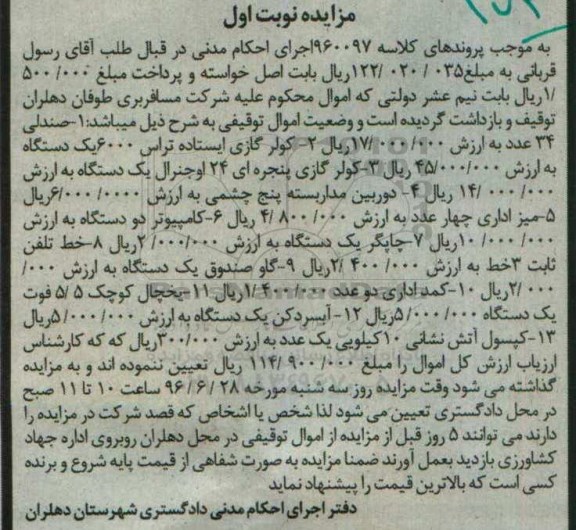 مزایده نوبت اول
به موجب پروندهای کلاسه ۹۶۰۰۹۷اجرای احکام مدنی در قبال طلب آقای رسول
قربانی به مبلغ۰۳۵/ ۰۲۰ /۱۲۲ریال بابت اصل خواسته و پرداخت مبلغ ۰۰۰/ ۵۰۰
/۱ریال بابت نیم عشر دولتی که اموال محکوم علیه شرکت مسافربری طوفان دهلران
توقیف و بازداشت گردیده است و وضعیت اموال توقیفی به شرح ذیل میباشد:۱-صندلی
۳۴ عدد به ارزش ۰۰۰/ ۰۰۰/ ۱۷ریال ۲- کولر گازی ایستاده تراس ۶۰۰۰یک دستگاه
به ارزش ۰۰۰/۰۰۰/ ۴۵ریال ۳-کولر گازی پنجره ای ۲۴ اوجنرال یک دستگاه به ارزش
۰۰۰/ ۰۰۰/ ۱۴ ریال ۴- دوربین مداربسته پنج چشمی به ارزش ۰۰۰۰/ ۰۰۰/ ۶ریال
۵-میز اداری چهار عدد به ارزش ۰۰۰/ ۸۰۰ /۴ ریال ۶-کامپیوتر دو دستگاه به ارزش
۰۰۰/ ۰۰۰/ ۱۰ریال ۷-چاپگر یک دستگاه به ارزش ۰۰۰/۰۰۰/ ۲ریال ۸-خط تلفن
ثابت ۳خط به ارزش ۰۰۰/ ۴۰۰ /۲ریال ۹-گاو صندوق یک دستگاه به ارزش ۰۰۰/
۰۰۰/ ۲ریال ۱۰-کمد اداری دو عدد ۰۰۰/ ۴۰۰ /۱ریال ۱۱-یخچال کوچک ۵ /۵ فوت
یک دستگاه ۰۰۰/ ۰۰۰/ ۵ریال ۱۲- آبسردکن یک دستگاه به ارزش ۰۰۰/ ۰۰۰/ ۵ریال
۱۳-کپسول آتش نشانی ۱۰کیلویی یک عدد به ارزش ۰۰۰/ ۳۰۰ریال که که کارشناس
ارزیاب ارزش کل اموال را مبلغ ۰۰۰/ ۹۰۰ /۱۱۴ ریال تعیین ننموده اند و به مزایده
گذاشته می شود وقت مزایده روز سه شنبه مورخه ۲۸ /۶ /۹۶ ساعت ۱۰ تا ۱۱ صبح
در محل دادگستری تعیین می شود لذا شخص یا اشخاص که قصد شرکت در مزایده را
دارند می توانند ۵ روز قبل از مزایده از اموال توقیفی در محل دهلران روبروی اداره جهاد
کشاورزی بازدید بعمل آورند ضمنا مزایده به صورت شفاهی از قیمت پایه شروع و برنده
کسی است که بالاترین قیمت را پیشنهاد نماید
دفتر اجرای احکام مدنی دادگستری شهرستان دهلران